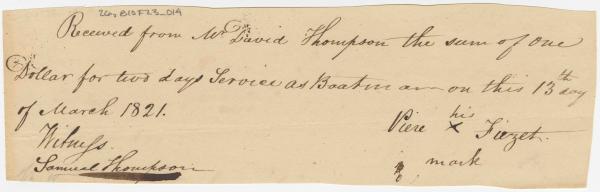 26.B10F23_014
Received from Mr David Thompson the sum of One
Dollar for two days Service as Boatman on this 13th day
of March 1821.
his
Witness. Piere x
Samuel Thompson mark